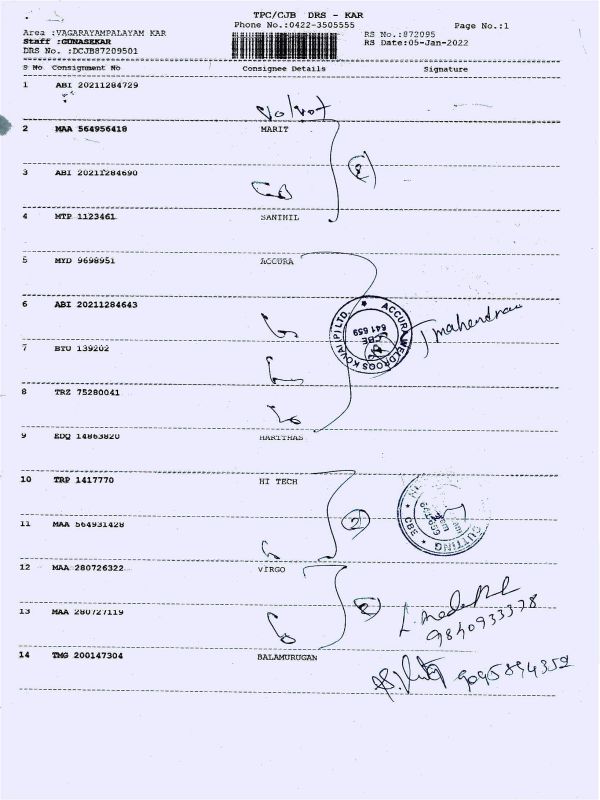 TPC/CJB DRS - KAR
Phone No.:0422-3505555
Page No.:1
Area :VAGARAYAMPALAYAM KAR
RS No.:872095
Staff :GUNASEKAR
RS Date:05-Jan-2022
DRS No. :DCJB87209501
S No Consignment No Consignee Details Signature
1 ABI 20211284729
2 MAA 564956418 MARIT
3 ABI 20211284690
4 MTP 1123461 SANTHIL
5 MYD 9698951 ACCURA
6 ABI 20211284643
ACCURA WELDROOS KOVAI P LTD.
CBE
641 659
mahendran
7 BTU 139202
8 TRZ 75280041
9 EDQ 14863820 HARITHAS
10 TRP 1417770 HI TECH
2
CUTTING
CBE
11 MAA 564931428
12 MAA 280726322 VIRGO
2
13 MAA 280727119
9840933378
14 TMG 200147304 BALAMURUGAN
9095894352